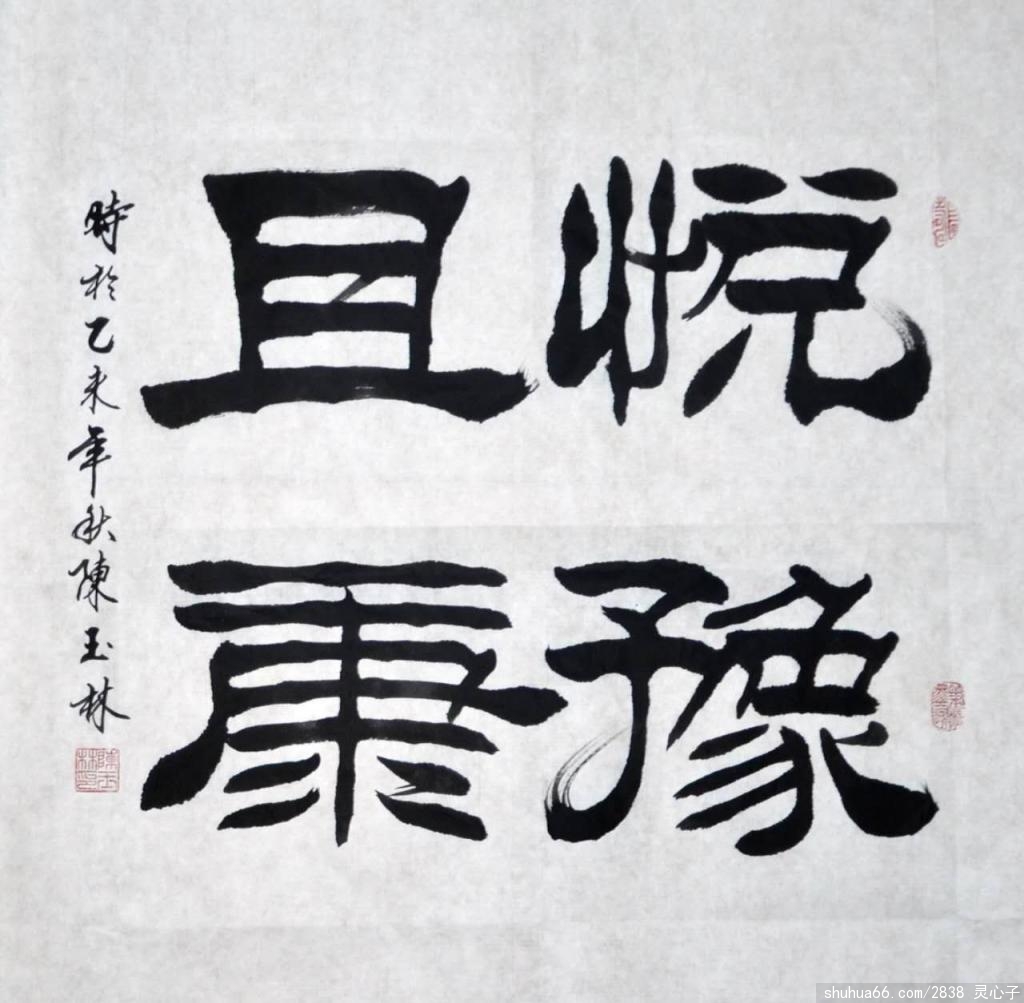 悦豫
且康
時於乙未年秋陳玉林
陳玉林印
shuhua66.com/2838 灵心子